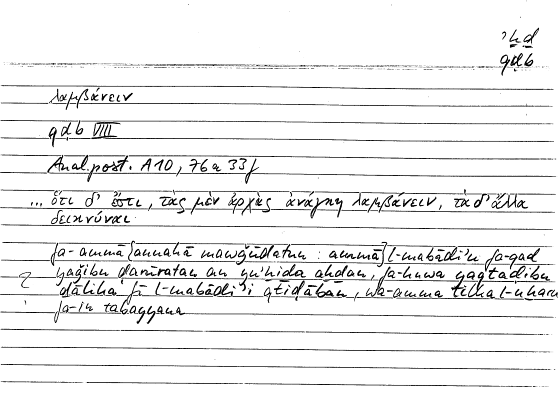 ʾḫḏ
qḍb
λαμβάνειν
qḍb VIII
Anal. post. A 10, 76a 33f
... ὅτι δ' ἔστι, τὰς μὲν ἀρχὰς ἀνάγκη λαμβάνειν, τὰ δ' ἄλλα
δεικνύναι
fa-ammā [annahā mawǧūdatun : ammā] l-mabādiʾu fa-qad
yaǧibu ḍarūratan an yuʾḫiḏa aḫḏan, fa-huwa yaqtaḍibu
? ḏālika fī l-mabādiʾi qtiḍāban, wa-amma tilka l-uḫaru
fa-in tabayyana